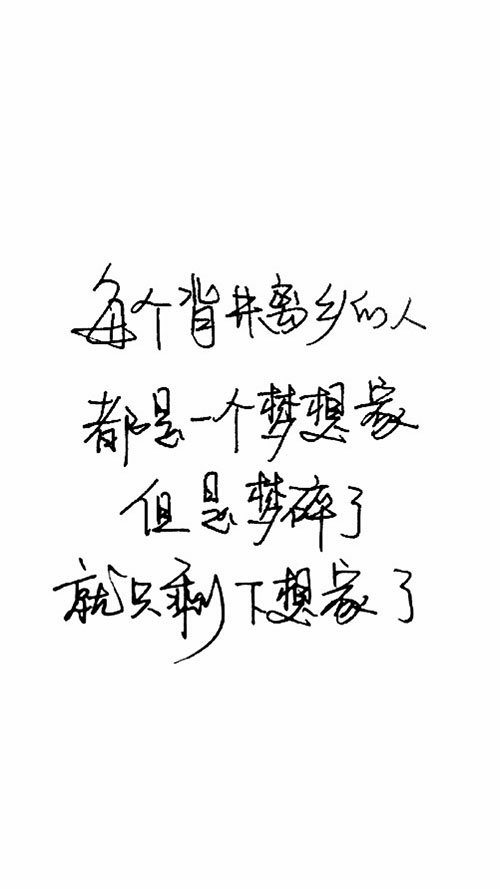 每个背井离乡的人
都是一个梦想家
但是梦碎了
就只剩下想家了